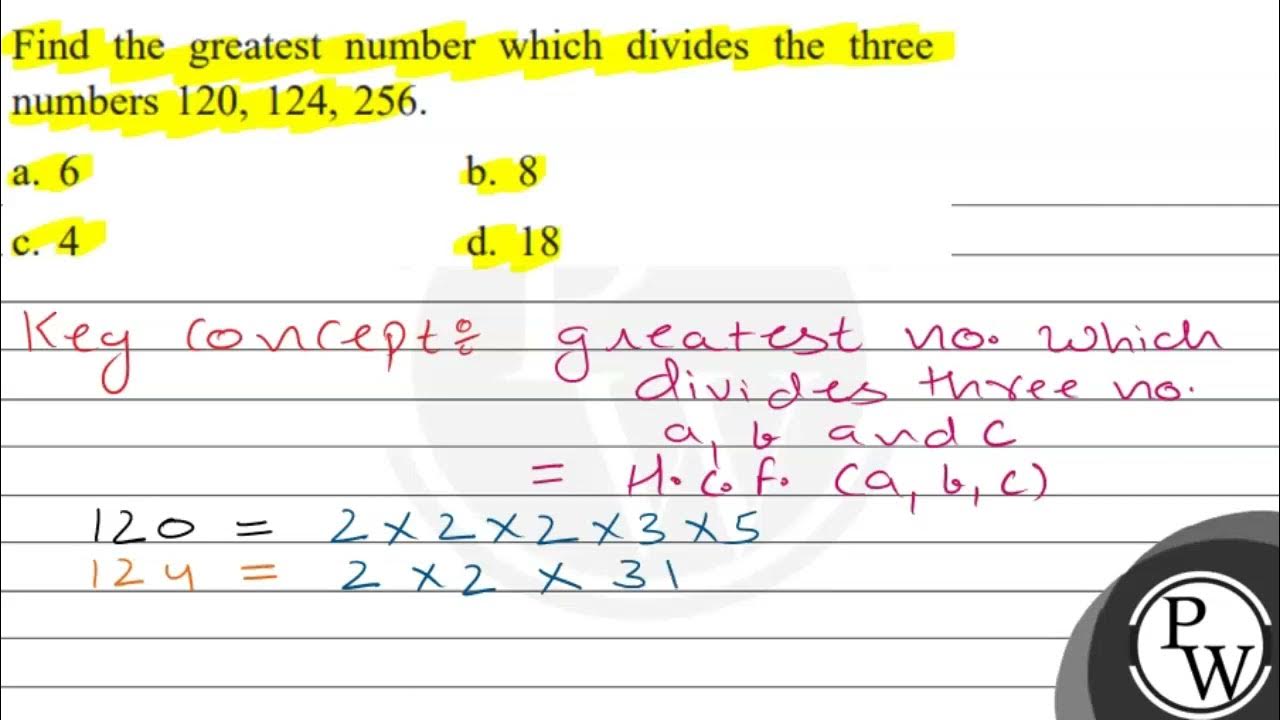 Find the greatest number which divides the three
numbers 120, 124, 256.
a. 6 b. 8
c. 4 d. 18
Key concept: greatest no. which
divides three no.
a, b and c
= H.C.F. (a, b, c)
120 = 2 × 2 × 2 × 3 × 5
124 = 2 × 2 × 31
PW